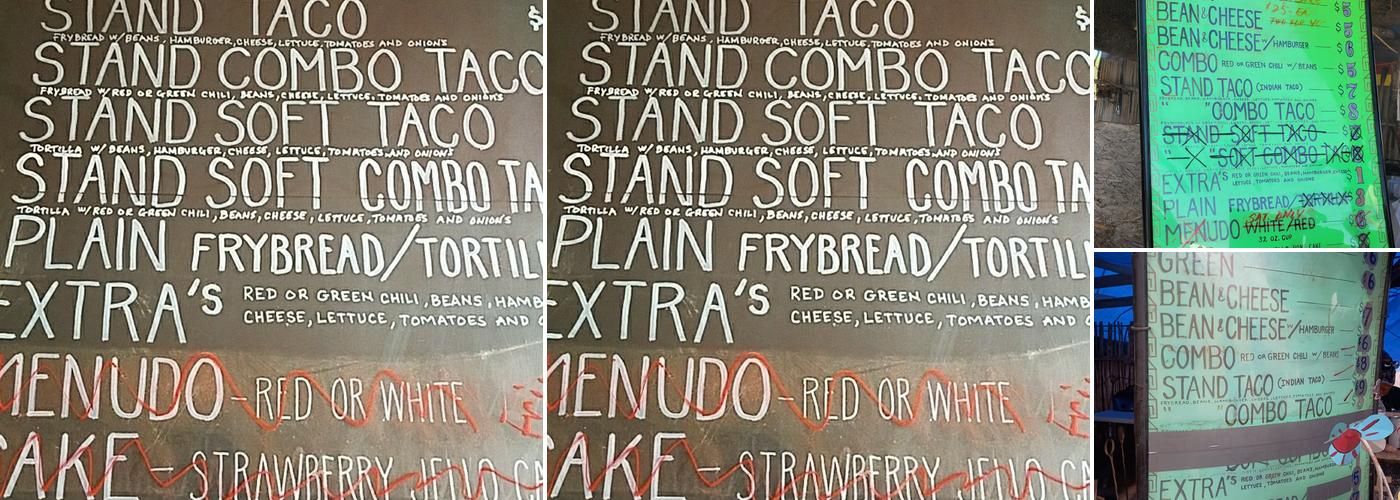 STAND TACO $
FRYBREAD W/ BEANS, HAMBURGER, CHEESE, LETTUCE, TOMATOES AND ONION'S
STAND COMBO TACO
FRYBREAD W/ RED OR GREEN CHILI, BEANS, CHEESE, LETTUCE, TOMATOES AND ONION'S
STAND SOFT TACO
TORTILLA W/ BEANS, HAMBURGER, CHEESE, LETTUCE, TOMATOES AND ONION'S
STAND SOFT COMBO TA
TORTILLA W/ RED OR GREEN CHILI, BEANS, CHEESE, LETTUCE, TOMATOES AND ONION'S
PLAIN FRYBREAD/TORTIL
EXTRA'S RED OR GREEN CHILI, BEANS, HAMB
CHEESE, LETTUCE, TOMATOES AND O
MENUDO - RED OR WHITE
CAKE - STRAWBERRY JELLO CA
STAND TACO $
FRYBREAD W/ BEANS, HAMBURGER, CHEESE, LETTUCE, TOMATOES AND ONION'S
STAND COMBO TACO
FRYBREAD W/ RED OR GREEN CHILI, BEANS, CHEESE, LETTUCE, TOMATOES AND ONION'S
STAND SOFT TACO
TORTILLA W/ BEANS, HAMBURGER, CHEESE, LETTUCE, TOMATOES AND ONION'S
STAND SOFT COMBO TA
TORTILLA W/ RED OR GREEN CHILI, BEANS, CHEESE, LETTUCE, TOMATOES AND ONION'S
PLAIN FRYBREAD/TORTIL
EXTRA'S RED OR GREEN CHILI, BEANS, HAMB
CHEESE, LETTUCE, TOMATOES AND O
MENUDO - RED OR WHITE
CAKE - STRAWBERRY JELLO CA
BEAN & CHEESE $5
BEAN & CHEESE W/ HAMBURGER $6
COMBO RED OR GREEN CHILI W/ BEANS $5
STAND TACO (INDIAN TACO) $7
" "COMBO TACO $8
STAND SOFT TACO
" SOFT COMBO TACO
EXTRA'S RED OR GREEN CHILI, BEANS, HAMBURGER, CHEESE $1
LETTUCE, TOMATOES AND ONIONS
PLAIN FRYBREAD/ 3
SAT. ONLY
MENUDO WHITE/RED 6
32 OZ. CUP
GREEN 6
BEAN & CHEESE
BEAN & CHEESE W/ HAMBURGER 7
COMBO RED OR GREEN CHILI W/ BEANS $6
STAND TACO (INDIAN TACO) $8
" "COMBO TACO $9
EXTRA'S RED OR GREEN CHILI, BEANS, HAMBURGER
LETTUCE, TOMATOES AND ONIONS